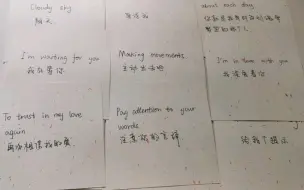 Cloudy sky
阴天
about each day
I'm waiting for you
我在等你
Making movements
主动出击吧
I'm in love with you
我深爱着你
To trust in my love
again
再次相信我的爱
Pay attention to your
words
注意你的言辞
给我个提示